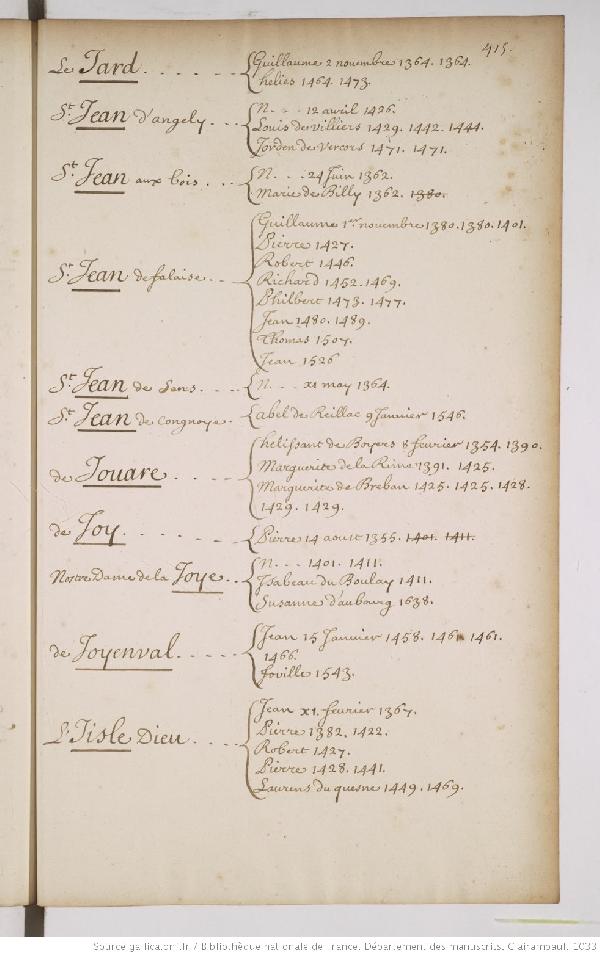 415.
Le Jard. . . . . . Guillaume 2 novembre 1364. 1364.
helies 1464. 1473.
St. Jean d'angely. . . N. . . . 12 avril 1426.
Louis de villiers 1429. 1442. 1444.
Jorden de Vercors 1471. 1471.
St. Jean aux bois. . . N. . . . 24 Juin 1362.
Marie de Billy 1362. 1380.
Guillaume 1er novembre 1380. 1380. 1401.
Pierre 1427.
Robert 1446.
St. Jean de falaise. . . Richard 1452. 1469.
Philbert 1473. 1477.
Jean 1480. 1489.
Thomas 1507.
Jean 1526
St. Jean de Sens. . . . N. . . . x1 may 1364.
St. Jean de Congnoye. . Label de Reillac 9 Janvier 1546.
helissant de Boyers 8 fevrier 1354. 1390.
de Jouare. . . . Marguerite de la 1391. 1425.
Marguerite de Breban 1425. 1425. 1428.
1429. 1429.
de Joy. . . . . . Pierre 14 aout 1355. 1401. 1411.
Nostre Dame de la Joye. . . N. . . . 1401. 1411.
Isabeau du Boulay 1411.
Susanne d'aubourg 1638.
de Joyenval. . . . . Jean 15 Janvier 1458. 1461. 1461.
1466.
foville 1543.
Jean x1. fevrier 1367.
L'Jisle Dieu. . . . Pierre 1382. 1422.
Robert 1427.
Pierre 1428. 1441.
Laurens du quesne 1449. 1469.
Source gallica.bnf.fr / Bibliothèque nationale de France. Département des manuscrits. Clairambault 1033